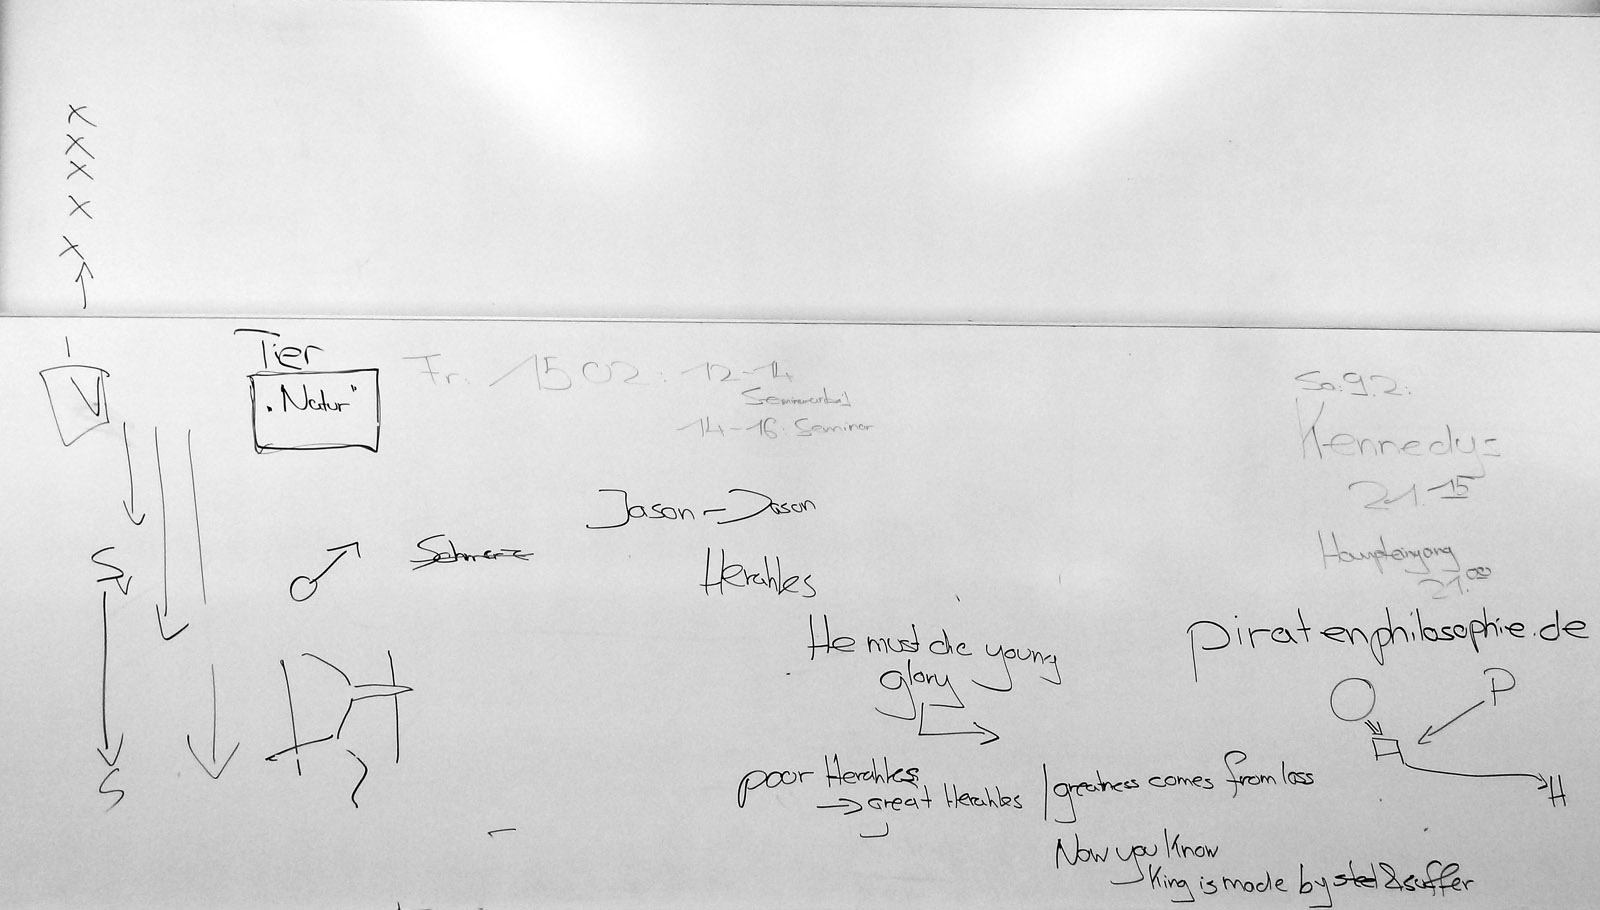 x
x
x
x
x
V
Tier
„Natur"
Fr. 15 02: 12-14
Seminararbeit
14-16: Seminar
Sa. 9.2.:
Kennedys
21.15
Haupteingang
21.00
Jason – Jason
S
Herakles
He must die young
glory
piratenphilosophie.de
P
poor Herakles
→ great Herakles
/ greatness comes from loss
H
S
Now you Know
King is made by steel & suffer